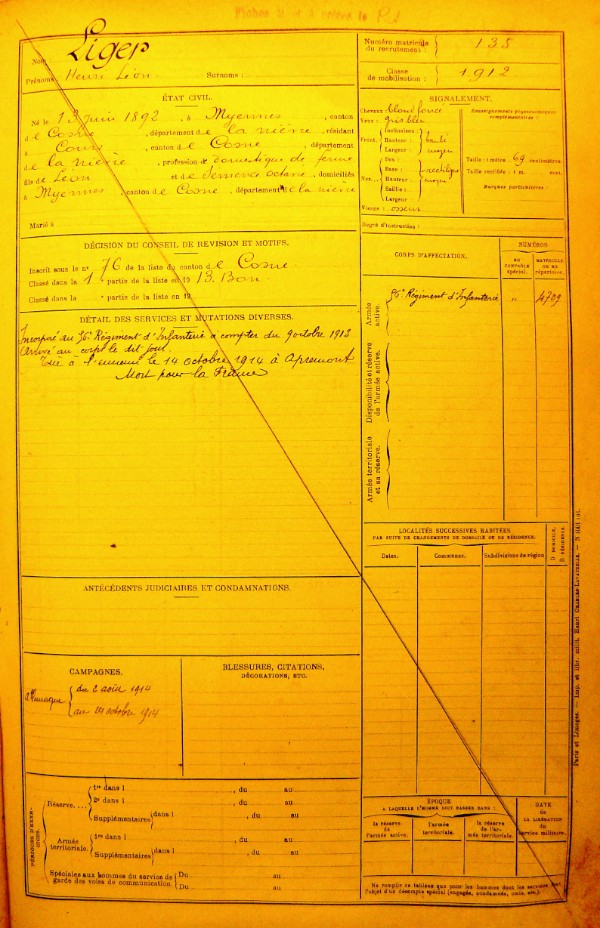 Liger
Nom
Prénoms: Henri Léon Surnoms:
Numéro matricule du recrutement: 135
Classe de mobilisation: 1912
ÉTAT CIVIL.
Né le 13 juin 1892, à Myennes, canton
de Cosne, département de la nièvre, résidant
à Cours, canton de Cosne, département
de la nièvre, profession de domestique de ferme
fils de Léon et de Octavie, domiciliés
à Myennes, canton de Cosne, département de la nièvre
Marié à
SIGNALEMENT.
Cheveux blond foncé
Yeux: gris bleu
Renseignements physionomiques complémentaires:
Front. Inclinaison:
Hauteur: haute
Largeur: moyen
Nez. Dos: rectiligne
Hauteur: moyen
Base:
Saillie:
Largeur:
Visage: osseux
Taille: 1 mètre 69 centimètres.
Taille rectifiée: 1 m. cent.
Marques particulières:
Degré d'instruction:
DÉCISION DU CONSEIL DE REVISION ET MOTIFS.
Inscrit sous le n° 76 de la liste du canton de Cosne
Classé dans la 1e partie de la liste en 1913. Bon
Classé dans la partie de la liste en 19
DÉTAIL DES SERVICES ET MUTATIONS DIVERSES.
Incorporé au 56e Régiment d'Infanterie à compter du 9 octobre 1913
Arrivé au corps le dit jour.
Tué à l'ennemi le 14 octobre 1914 à Apremont
Mort pour la France
CORPS D'AFFECTATION.
NUMÉROS
AU CONTROLE spécial.
MATRICULE OU AU répertoire.
Armée active.
56e Régiment d'Infanterie " 4709
Disponibilité et réserve de l'armée active.
Armée territoriale et sa réserve.
LOCALITÉS SUCCESSIVES HABITÉES
PAR SUITE DE CHANGEMENTS DE DOMICILE OU DE RÉSIDENCE.
Dates. Communes. Subdivisions de région D. DOMICILE, R. RÉSIDENCE.
ANTÉCÉDENTS JUDICIAIRES ET CONDAMNATIONS.
CAMPAGNES.
du 2 août 1914
au 14 octobre 1914
BLESSURES, CITATIONS,
DÉCORATIONS, ETC.
PÉRIODES D'EXERCICES.
Réserve....
1re dans l , du au
2e dans l , du au
Supplémentaires dans l , du au
Armée territoriale.
1re dans l , du au
Supplémentaires dans l , du au
Spéciales aux hommes du service de garde des voies de communication.
Du au
Du au
ÉPOQUE
A LAQUELLE L'HOMME DOIT PASSER DANS:
la réserve de l'armée active.
l'armée territoriale.
la réserve de l'armée territoriale.
DATE de LA LIBÉRATION du service militaire.
Ne remplir ce tableau que pour les hommes dont les services font
l'objet d'un décompte spécial (engagés, condamnés, omis, etc.).
Paris et Limoges. — Imp. et libr. milit. Henri CHARLES-LAVAUZELLE.